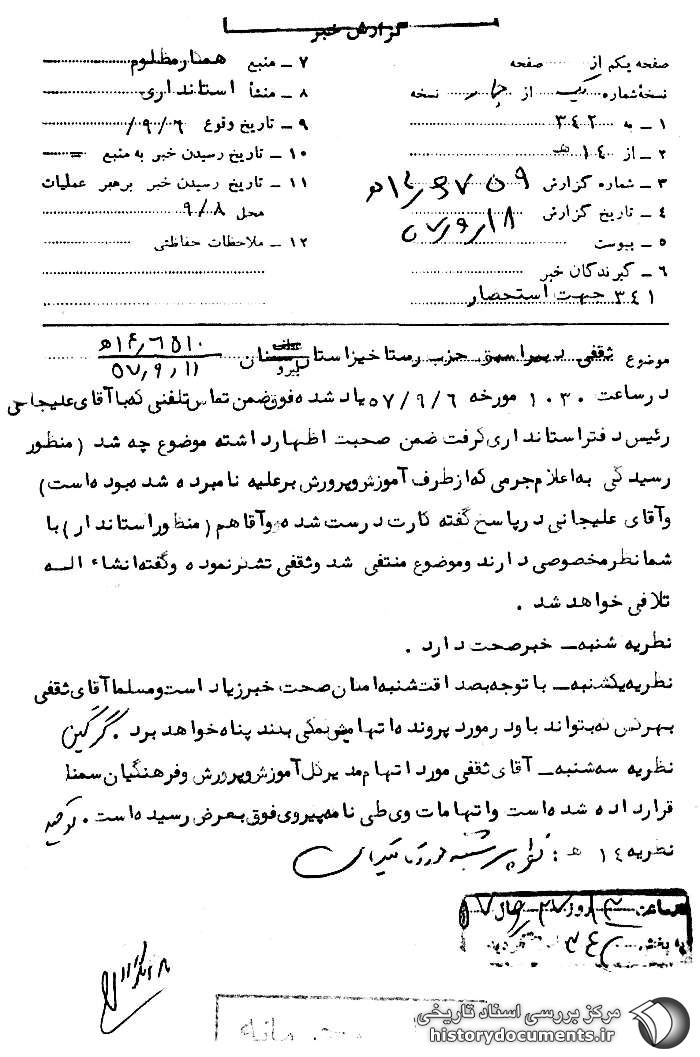 گزارش خبر
صفحه یکم از ... صفحه
نسخهٔ شماره یک از چهار نسخه
۱ ـ به ۳۴۲
۲ ـ از ۱۴ هـ
۳ ـ شماره گزارش
۴ ـ تاریخ گزارش
۵ ـ پیوست
۶ ـ گیرندگان خبر
۳۴۱ جهت استحضار
۷ ـ منبع همکار مظلوم
۸ ـ منشأ استانداری
۹ ـ تاریخ وقوع ۹/۶/
۱۰ ـ تاریخ رسیدن خبر به منبع =
۱۱ ـ تاریخ رسیدن خبر برهبر عملیات
محل ۹/۸
۱۲ ـ ملاحظات حفاظتی
موضوع ثقفی دبیر اسبق حزب رستاخیز استان سمنان
عطف
پیرو
۱۴/۶۵۱۰ هـ
۵۷٫۹٫۱۱
درساعت ۱۰۳۰ مورخه ۵۷/۹/۶ یاد شده فوق ضمن تماس تلفنی که با آقای علیجانی
رئیس دفتر استانداری گرفت ضمن صحبت اظهار داشته موضوع چه شد (منظور
رسیدگی به اعلام جرمی که از طرف آموزش و پرورش برعلیه نامبرده شده بوده است)
و آقای علیجانی در پاسخ گفته کارت درست شده و آقا هم (منظور استاندار) با
شما نظر مخصوصی دارند و موضوع منتفی شد و ثقفی تشکر نموده و گفته انشاء اله
تلافی خواهد شد .
نظریه شنبه ـ خبر صحت دارد .
نظریه یکشنبه ـ با توجه بصداقت شنبه امکان صحت خبر زیاد است و مسلما آقای ثقفی
بهرکس که بتواند باو در مورد پرونده اتهامیش کمکی بدند پناه خواهد برد . گرگین
نظریه سه شنبه ـ آقای ثقفی مورد اتهام مدیر کل آموزش و پرورش و فرهنگیان سمنا
قرار داده شده است و اتهامات وی طی نامه پیروی فوق بعرض رسیده است . توحید
نظریه ۱۴ هـ :
مرکز بررسی اسناد تاریخی
historydocuments.ir